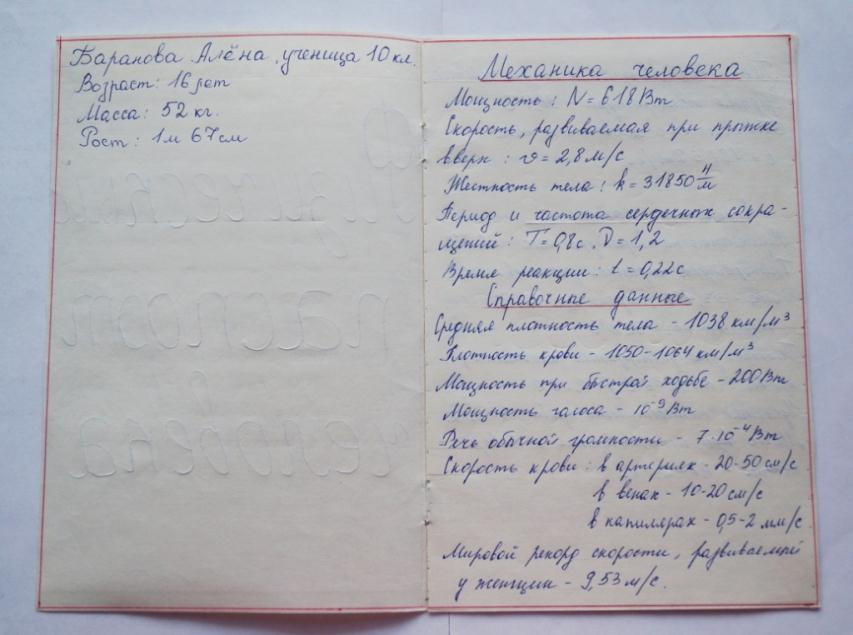 Баранова Алёна, ученица 10 кл.
Возраст: 16 лет
Масса: 52 кг.
Рост: 1м 67см
Физический
паспорт
человека
Механика человека
Мощность: N = 618 Вт
Скорость, развиваемая при прыжке
вверх: v = 2,8 м/с
Жесткость тела: k = 31850 Н/м
Период и частота сердечных сокра-
щений: T = 0,8с, ν = 1,2
Время реакции: t = 0,22с
Справочные данные
Средняя плотность тела - 1038 км/м³
Плотность крови - 1050-1064 км/м³
Мощность при быстрой ходьбе - 200 Вт
Мощность голоса - 10⁻⁹ Вт
Речь обычной громкости - 7·10⁻⁴ Вт
Скорость крови: в артериях - 20-50 см/с
в венах - 10-20 см/с
в капилярах - 0,5-2 мм/с.
Мировой рекорд скорости, развиваемый
у женщин - 9,53 м/с.